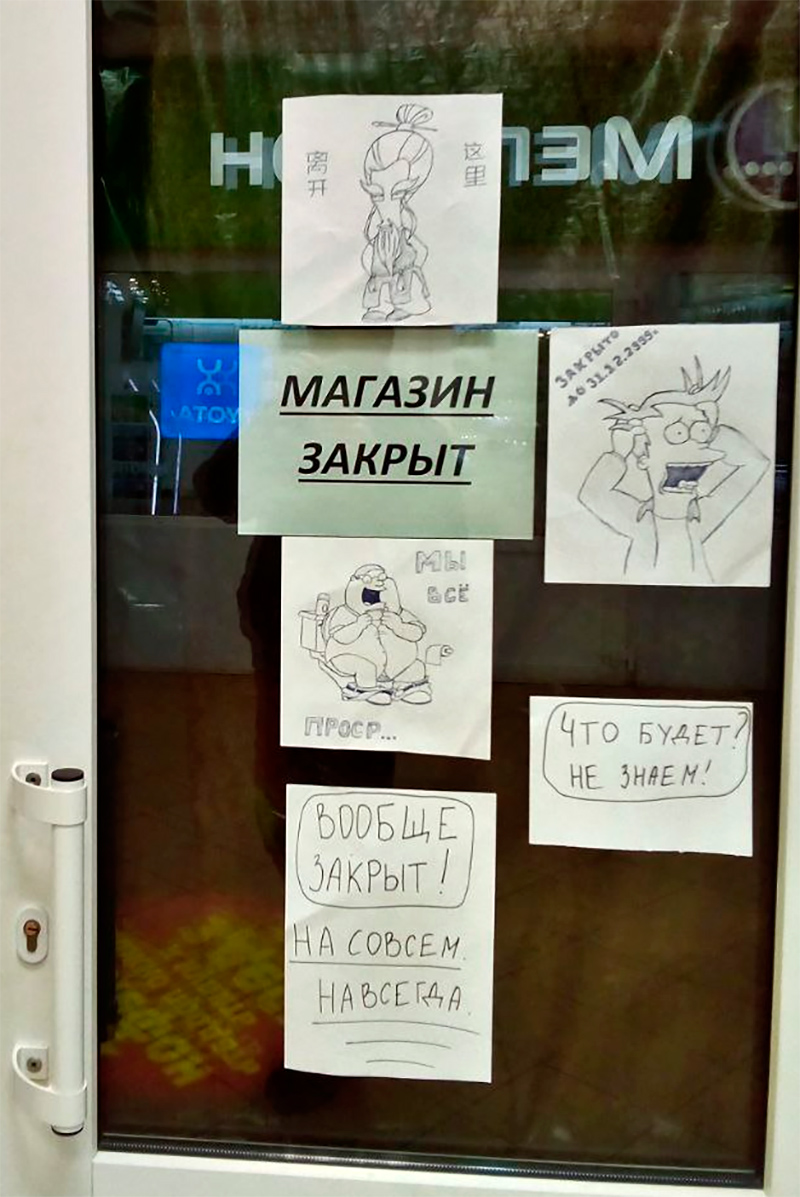 离开
这里
МАГАЗИН
ЗАКРЫТ
YOTA
ЗАКРЫТО
ДО 31.12.2999г.
МЫ
ВСЁ
ПРОСР...
ЧТО БУДЕТ?
НЕ ЗНАЕМ!
ВООБЩЕ
ЗАКРЫТ!
НА СОВСЕМ.
НАВСЕГДА.